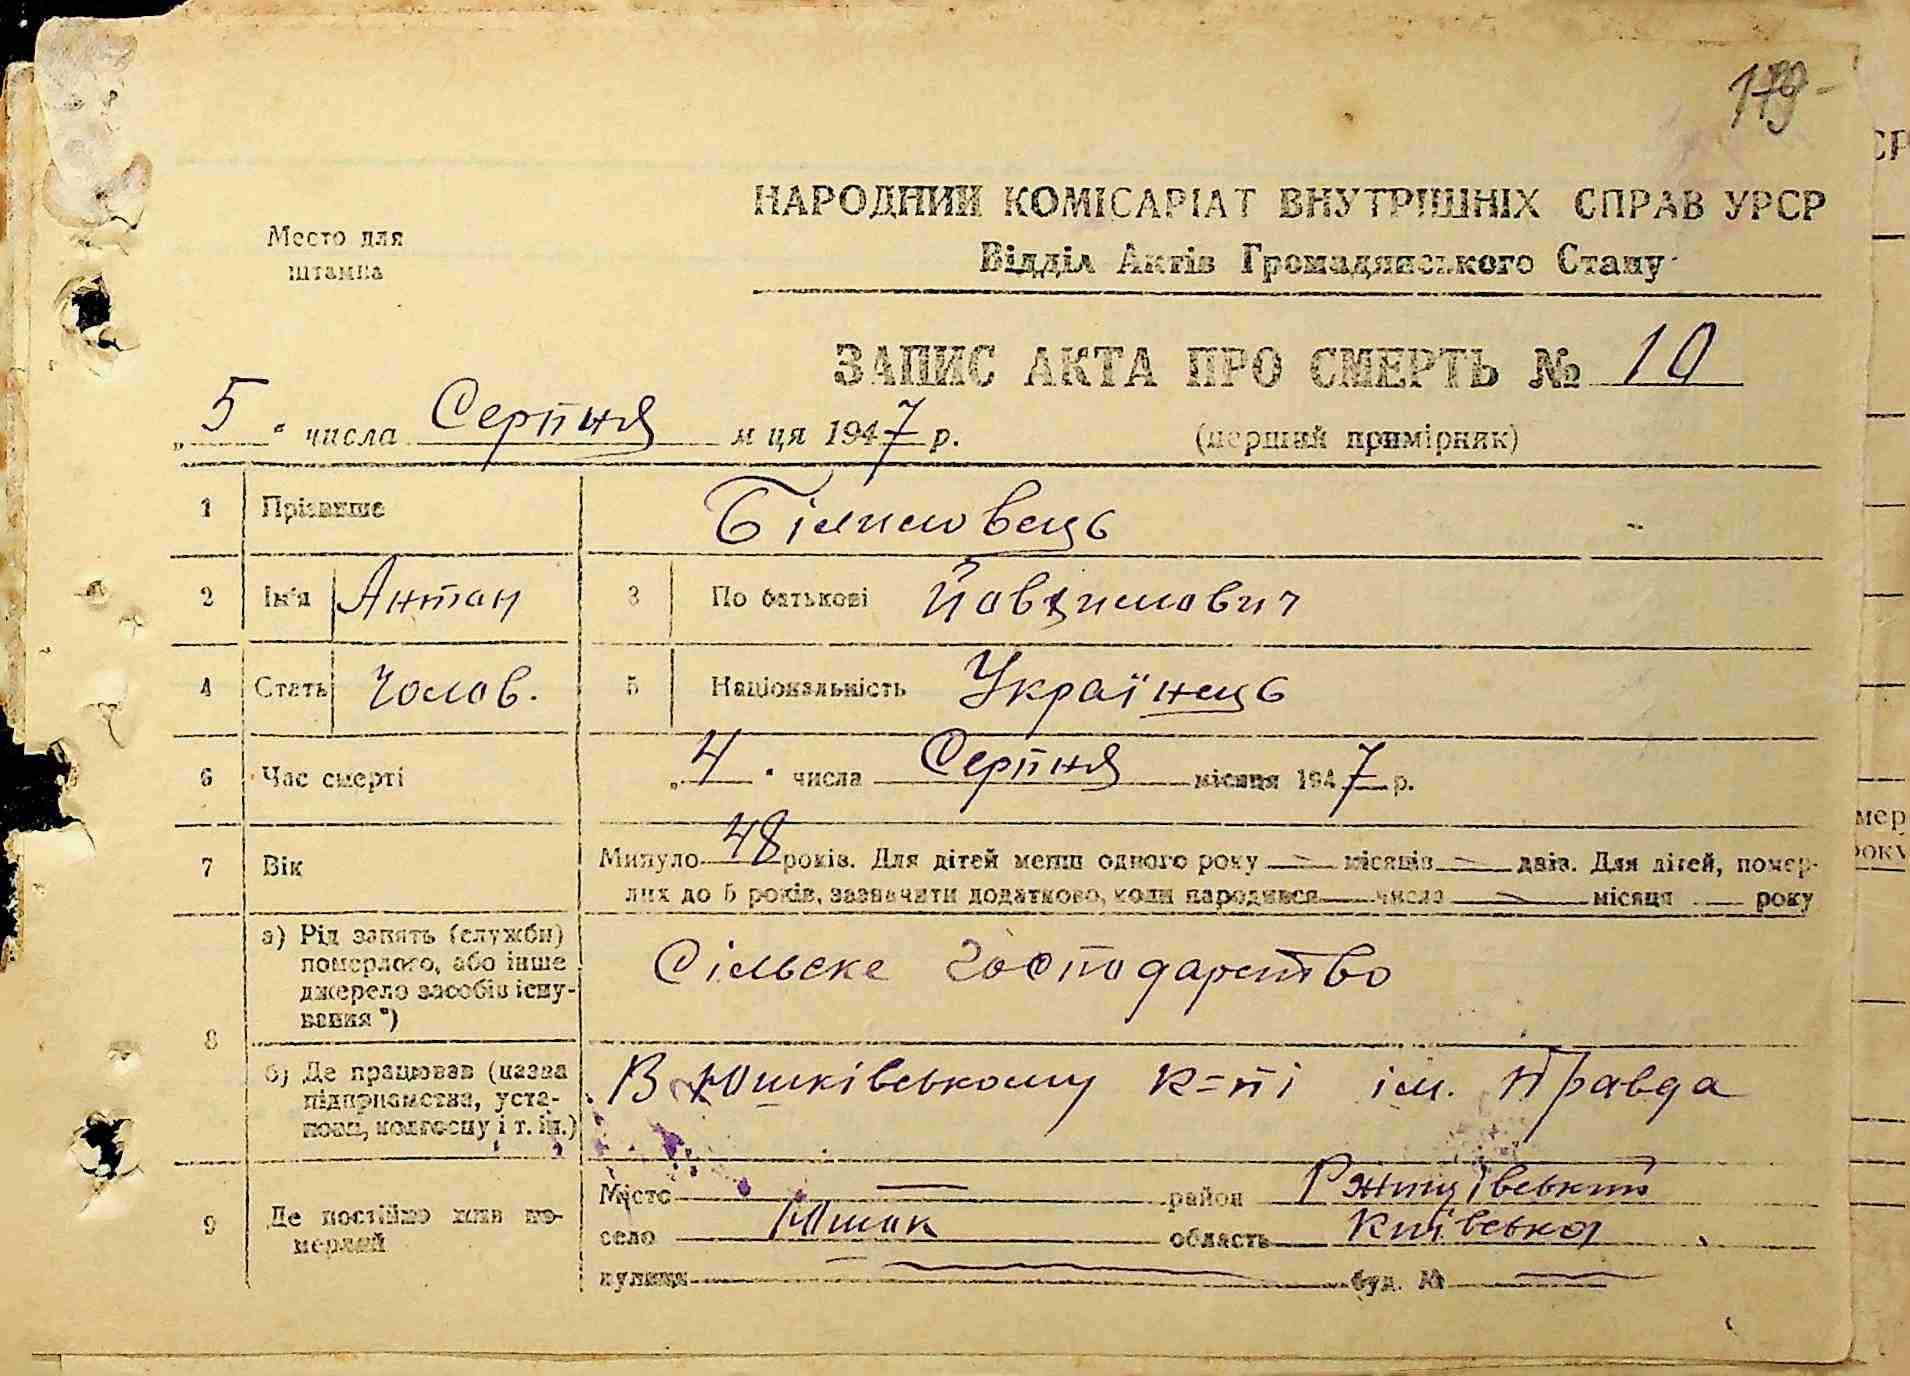 179-
Место для
штампа
НАРОДНИЙ КОМІСАРІАТ ВНУТРІШНІХ СПРАВ УРСР
Відділ Актів Громадянського Стану
ЗАПИС АКТА ПРО СМЕРТЬ № 10
„5" числа Серпня м ця 1947 р. (перший примірник)
1 Прізвище
2 Ім'я Антон 3 По батькові
4 Стать Чолов. 5 Національність Українець
6 Час смерті „4" числа Серпня місяця 1947 р.
7 Вік Минуло 48 років. Для дітей менш одного року — місяців — днів. Для дітей, помер-
лих до 5 років, зазначити додатково, коли народився — числа — місяця — року
8 а) Рід занять (служби)
померлого, або інше
джерело засобів існу-
вання*)
Сільске господарство
б) Де працював (назва
підприємства, уста-
нови, колгоспу і т. ін.)
В Юшківському к=пі ім. Правда
9 Де постійно жив по-
мерлий
Місто — район Ржищівський
село область Київська
вулиця — буд. № —
СР
мер
року